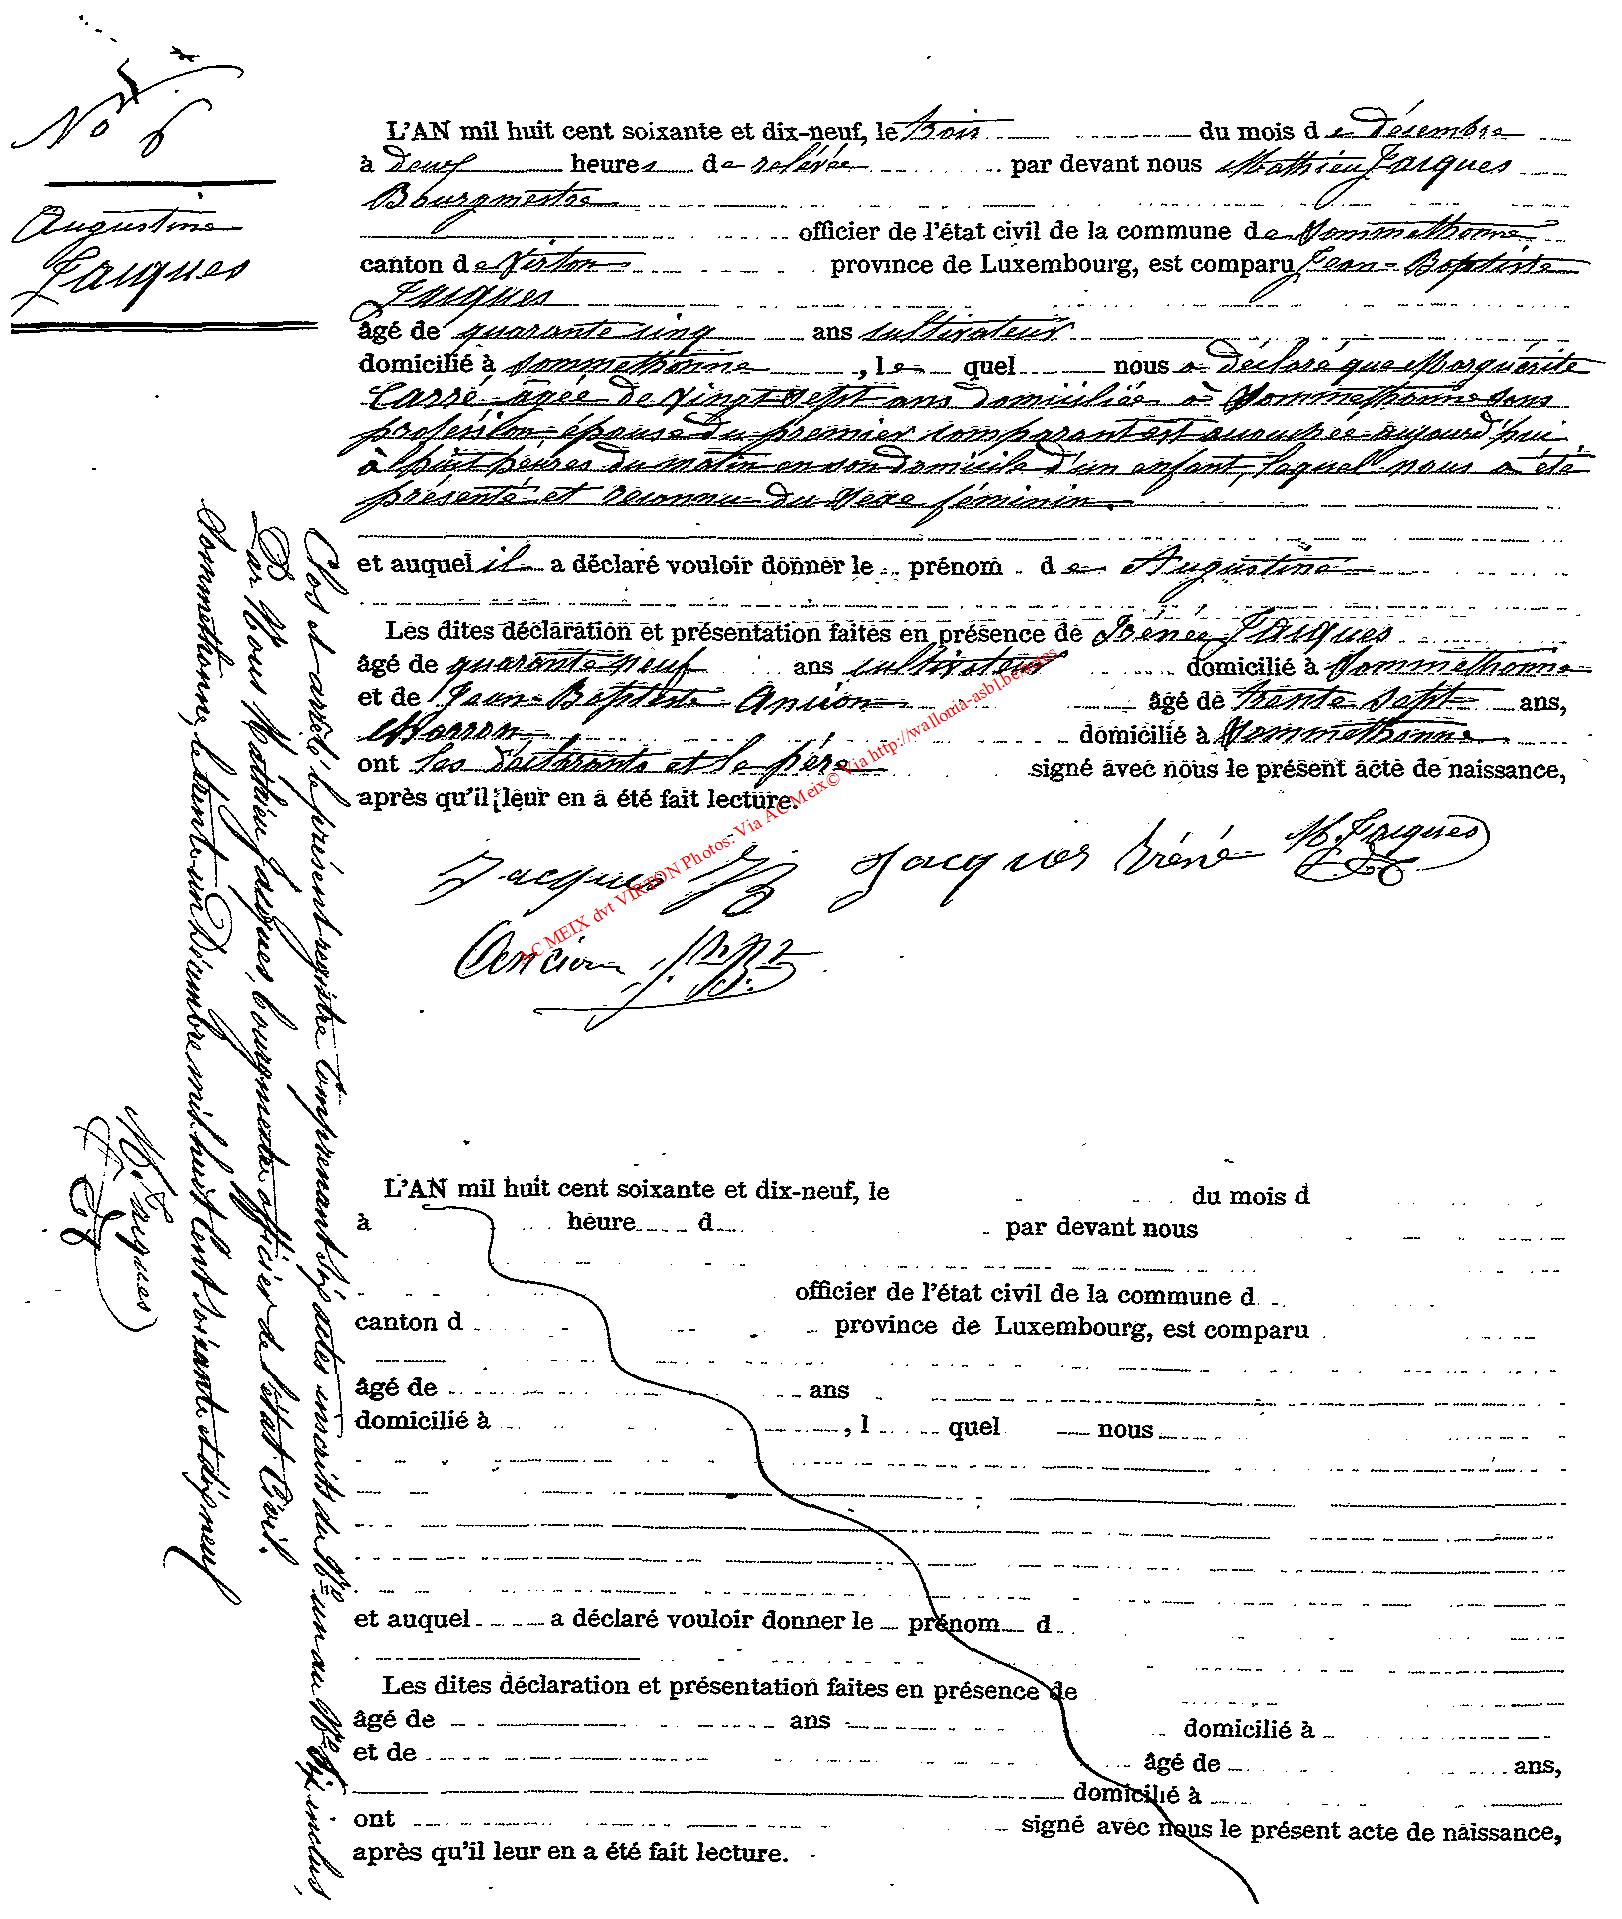 No 6
Augustine
Jacques
L'AN mil huit cent soixante et dix-neuf, le trois du mois de Désembre
à deux heures de relévée par devant nous Mathieu Jacques
Bourgmestre
officier de l'état civil de la commune de Sommethonne
canton de Virton province de Luxembourg, est comparu Jean-Baptiste
Jacques
âgé de quarante cinq ans cultivateur
domicilié à Sommethonne, le quel nous a déclaré que Marguérite
Carré âgée de vingt sept ans domiciliée à Sommethonne sans
profession, épouse du premier comparant est accouchée aujourd'hui
à huit heures du matin en son domicile d'un enfant, laquel nous a été
présenté et reconnu du sexe féminin.
et auquel il a déclaré vouloir donner le prénom de Augustine
Les dites déclaration et présentation faites en présence de Iréné Jacques
âgé de quarante neuf ans cultivateur domicilié à Sommethonne
et de Jean-Baptiste Ancion âgé de trente sept ans,
domicilié à Sommethonne
ont les déclarants et le père signé avec nous le présent acte de naissance,
après qu'il leur en a été fait lecture.
AC MEIX dvt VIRTON Photos: Via AC Meix© Via http://wallonia-asbl.be
Jacques JB Jacques Iréné M. Jacques
Ancion J. Bte
Clos et arrêté le présent registre comprenant six actes inscrits du No un au No six inclus
Par Nous Mathieu Jacques, bourgmestre officier de l'état Civil.
Sommethonne, le trente un Décembre mil huit cent soixante et dix neuf
M. Jacques
L'AN mil huit cent soixante et dix-neuf, le du mois d
à heure d par devant nous
officier de l'état civil de la commune d
canton d province de Luxembourg, est comparu
âgé de ans
domicilié à , l quel nous
et auquel a déclaré vouloir donner le prénom d
Les dites déclaration et présentation faites en présence de
âgé de ans domicilié à
et de âgé de ans,
domicilié à
ont signé avec nous le présent acte de naissance,
après qu'il leur en a été fait lecture.